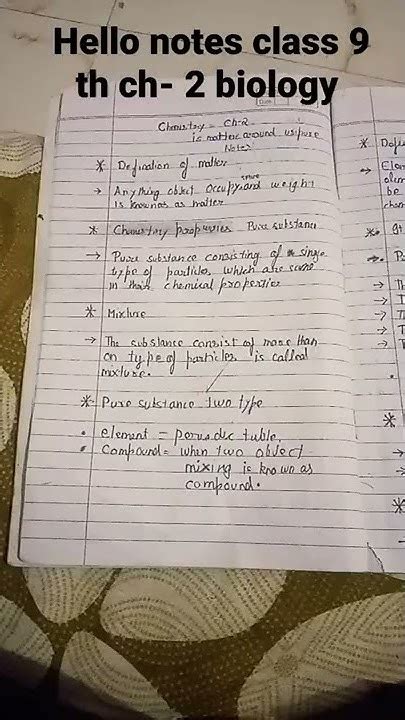 Hello notes class 9
th ch- 2 biology
Date
Chemistry - Ch-2
is matter around us pure
Notes
* Defination of matter
→ Any thing object occupy and weight
is known as matter
* Chemistry properties Pure substance
→ Pure substance consisting of single
type of particles which are same
in their chemical properties
* Mixture
→ The substance consist of more than
on type of particles is called
mixture.
* Pure substance two type
• element = periodic table.
• compound = when two object
mixing is known as
compound.
* Defi
→ Elem
elem
be
chem
→ Th
→ T
*